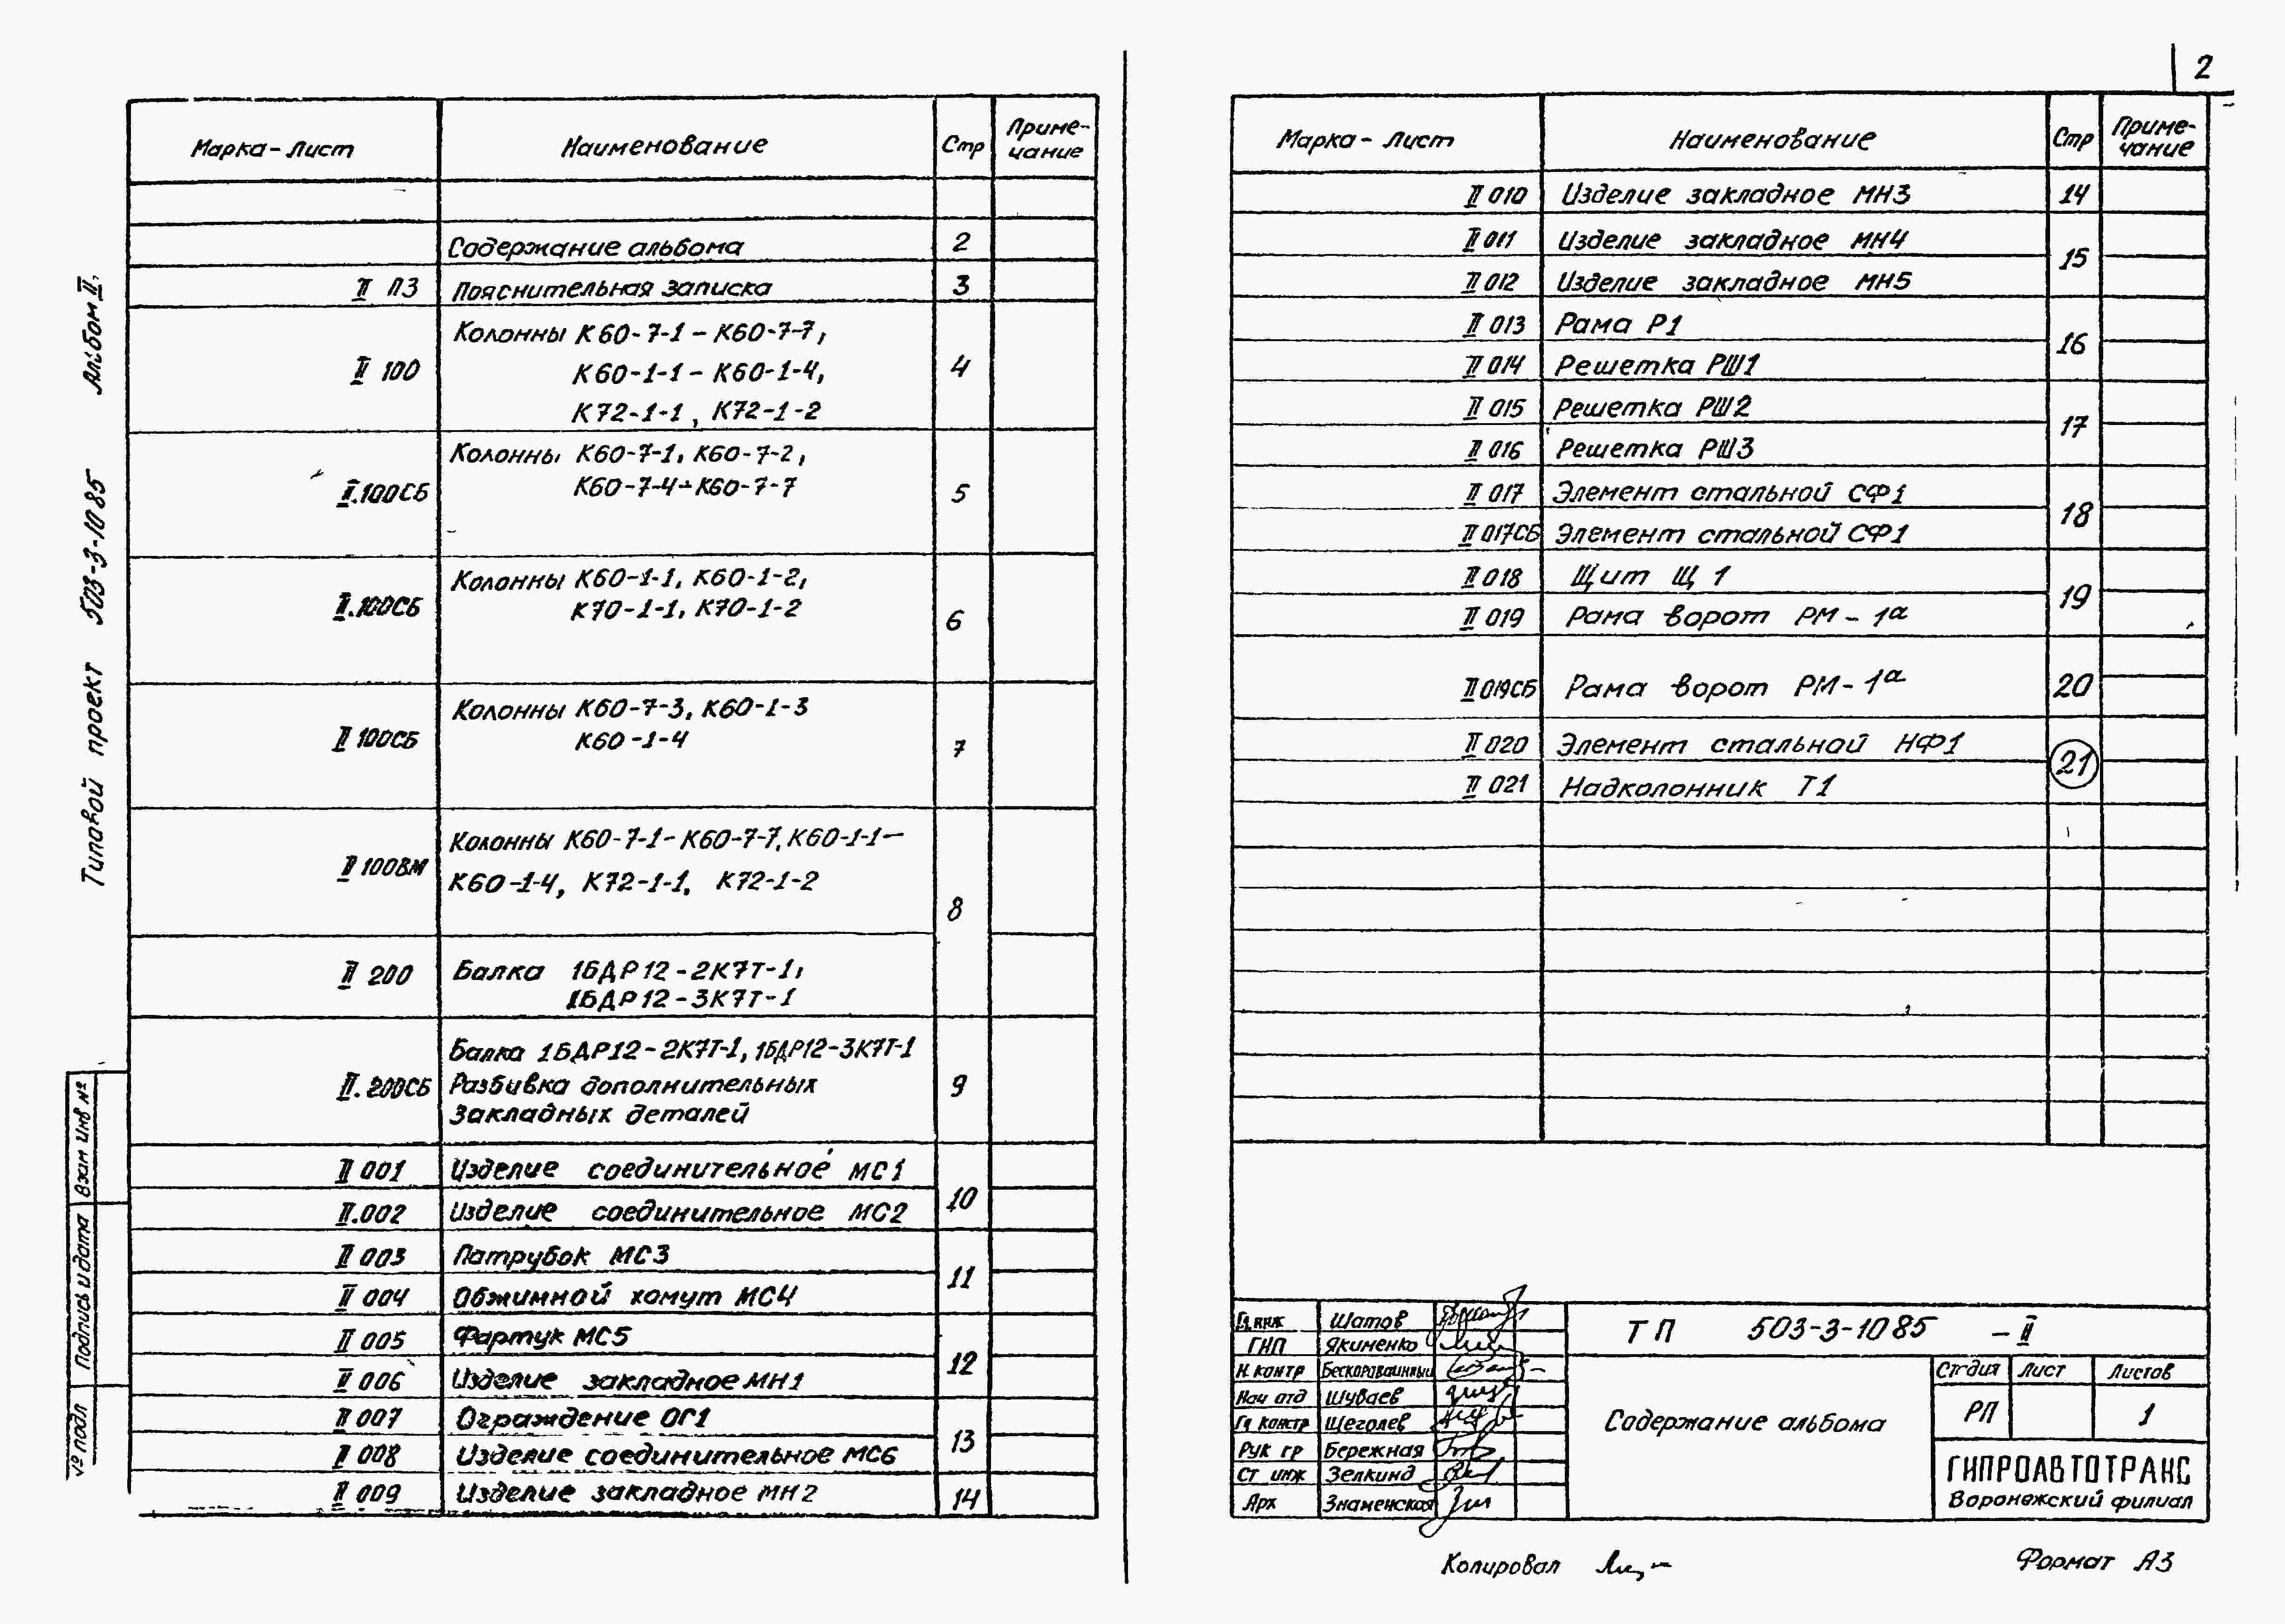 2
Альбом II.
Типовой проект 503-3-10 85
Взам инв №
Подпись и дата
№ подл
Марка-лист Наименование Стр Приме-
чание
Содержание альбома 2
II ПЗ Пояснительная записка 3
II 100 Колонны К60-7-1 - К60-7-7,
К60-1-1 - К60-1-4, 4
К72-1-1, К72-1-2
II.100СБ Колонны К60-7-1, К60-7-2,
К60-7-4-К60-7-7 5
II.100СБ Колонны К60-1-1, К60-1-2,
К70-1-1, К70-1-2 6
II 100СБ Колонны К60-7-3, К60-1-3
К60-1-4 7
II 100ВМ Колонны К60-7-1-К60-7-7, К60-1-1-
К60-1-4, К72-1-1, К72-1-2
8
II 200 Балка 1БДР12-2К7Т-1,
1БДР12-3К7Т-1
Балка 1БДР12-2К7Т-1, 1БДР12-3К7Т-1
II.200СБ Разбивка дополнительных 9
закладных деталей
II 001 Изделие соединительное МС1
10
II.002 Изделие соединительное МС2
II 003 Патрубок МС3
11
II 004 Обжимной хомут МС4
II 005 Фартук МС5
12
II 006 Изделие закладное МН1
II 007 Ограждение ОГ1
13
II 008 Изделие соединительное МС6
II 009 Изделие закладное МН2 14
Марка-лист Наименование Стр Приме-
чание
II 010 Изделие закладное МН3 14
II 011 Изделие закладное МН4
15
II 012 Изделие закладное МН5
II 013 Рама Р1
16
II 014 Решетка РШ1
II 015 Решетка РШ2
17
II 016 Решетка РШ3
II 017 Элемент стальной СФ1
18
II 017СБ Элемент стальной СФ1
II 018 Щит Щ 1
19
II 019 Рама ворот РМ-1а
II 019СБ Рама ворот РМ-1а 20
II 020 Элемент стальной НФ1
21
II 021 Надколонник Т1
Гл инж Шатов
ГИП Якименко
Н. контр Бескоровайный
Нач отд Шуваев
Гл констр Щеголев
Рук гр Бережная
Ст инж Зелкинд
Арх Знаменская
ТП 503-3-10 85 -II
Содержание альбома
Стадия Лист Листов
РП 1
ГИПРОАВТОТРАНС
Воронежский филиал
Копировал
Формат А3